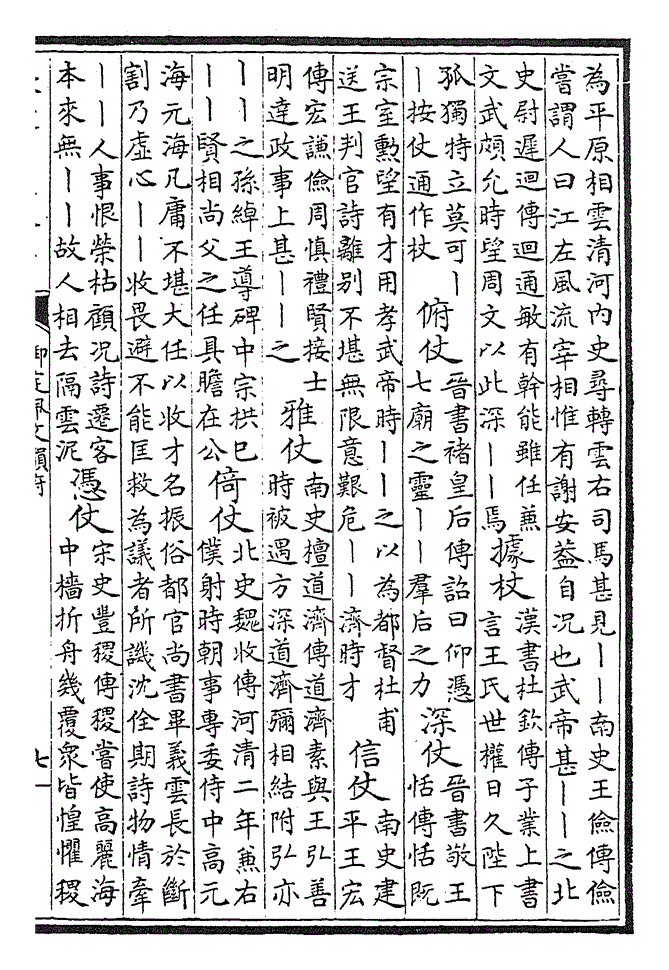 為平原相雲清河内史尋轉雲右司馬甚見丨丨南史王儉傳儉
嘗謂人曰江左風流宰相惟有謝安葢自况也武帝甚丨丨之北
史尉遲迥傳迥通敏有幹能雖任兼
文武頗允時望周文以此深丨丨焉
據杖
漢書杜欽傳子業上書
言王氏世權日久陛下
孤獨特立莫可丨
丨按仗通作杖
俯仗
晉書褚皇后傳詔曰仰憑
七廟之靈丨丨羣后之力
深仗
晉書敬王
恬傳恬既
宗室勲望有才用孝武帝時丨丨之以為都督杜甫
送王判官詩離别不堪無限意艱危丨丨濟時才
信仗
南史建
平王宏
傳宏謙儉周慎禮賢接士
明達政事上甚丨丨之
雅仗
南史檀道濟傳道濟素與王弘善
時被遇方深道濟彌相結附弘亦
丨丨之孫綽王尊碑中宗拱已
丨丨賢相尚父之任具瞻在公
倚仗
北史魏收傳河清二年兼右
僕射時朝事專委侍中高元
海元海凡庸不堪大任以收才名振俗都官尚書畢義雲長於斷
割乃虚心丨丨收畏避不能匡救為議者所譏沈佺期詩物情牽
丨丨人事恨榮枯顧况詩遷客
本來無丨丨故人相去隔雲泥
憑仗
宋史豐稷傳稷嘗使高麗海
中檣折舟幾覆衆皆惶懼稷